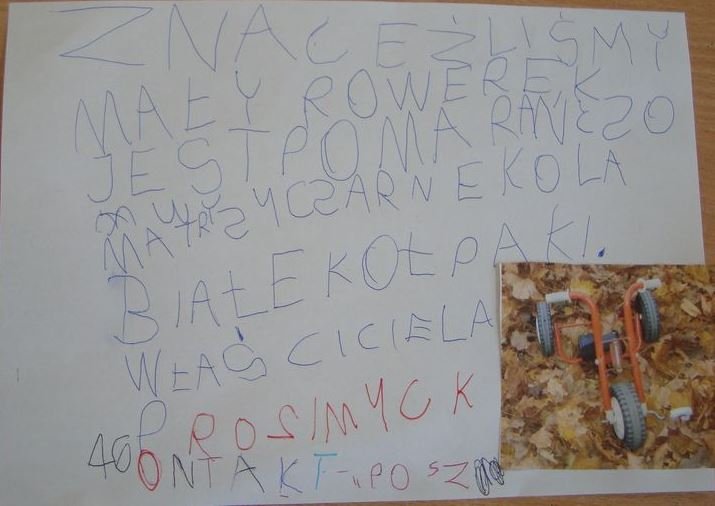 ZNALEŹLIŚMY
MAŁY ROWEREK
JEST POMARAŃCZO
WY
MA TRZY CZARNE KOLA
BIAŁE KOŁPAKI.
WŁAŚCICIELA
PROSIMY O K
ONTAKT